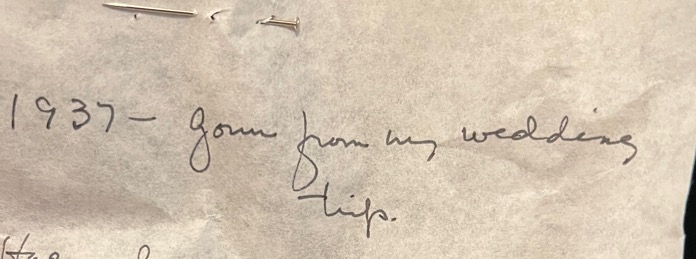 1937 – gown from my wedding
trip.